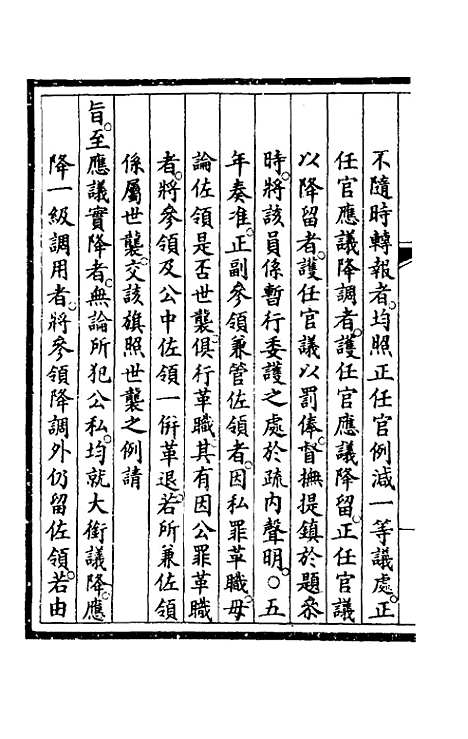 不隨時轉報者。均照正任官例減一等議處。正
任官應議降調者。護任官應議降留。正任官議
以降留者。護任官議以罰俸。督撫提鎮於題參
時。將該員係暫行委護之處於疏內聲明。○五
年奏准。正副參領兼管佐領者。因私罪革職。毋
論佐領是否世襲。俱行革職。其有因公罪革職
者。將參領及公中佐領一併革退。若所兼佐領
係屬世襲。交該旗照世襲之例請
旨。至應議實降者。無論所犯公私。均就大銜議降。應
降一級調用者。將參領降調外仍留佐領。若由